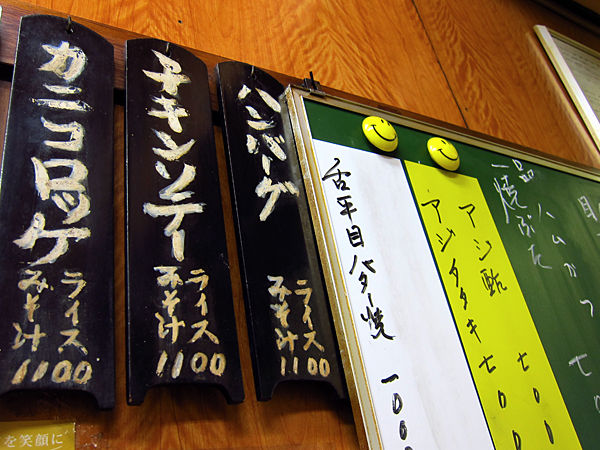 カニコロッケ
ライス
みそ汁
1100
チキンソテイー
ライス
みそ汁
1100
ハンバーグ
ライス
みそ汁
1100
舌平目バター焼 一〇〇
アジタタキ 七〇
アジ酢 七〇〇
一品
焼ぶた
ハムかつ 七
目
を笑顔に